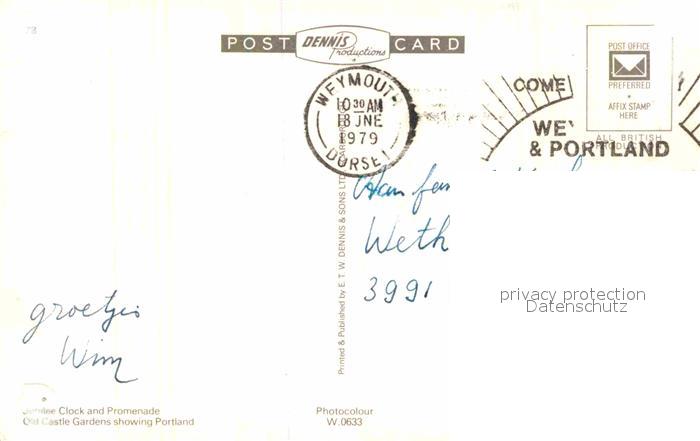 78
POST DENNIS Productions CARD
WEYMOUTH
10 30 AM
18 JNE
1979
DORSET
COME
WE
& PORTLAND
POST OFFICE
PREFERRED
AFFIX STAMP
HERE
ALL BRITISH
Weth
3991
Printed & Published by E. T. W. DENNIS & SONS LTD.
privacy protection
Datenschutz
groetjes
Wim
Jubilee Clock and Promenade
Old Castle Gardens showing Portland
Photocolour
W.0633